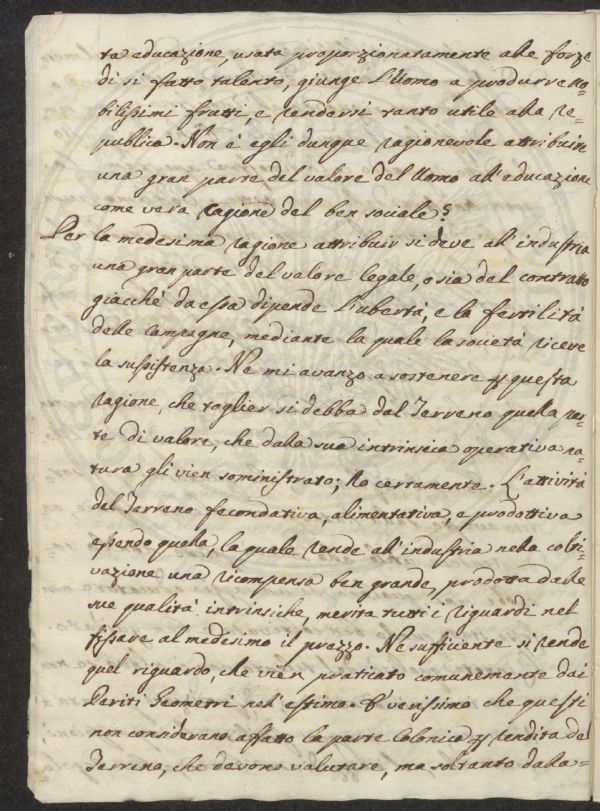 ta educazione, usata proporzionatamente alle forze
di si fatto talento, giunge l'Uomo a produrre no-
bilissimi frutti, e rendersi tanto utile alla re-
pubblica. Non è egli dunque ragionevole attribuire
una gran parte del valore del Uomo all'educazione
come vera ragione del ben sociale?
Per la medesima ragione attribuir si deve all'industria
una gran parte del valore legale, o sia del contratto
giacchè da essa dipende l'ubertà, e la fertilità
delle Campagne, mediante la quale la società riceve
la sussistenza. Ne mi avanzo a sostenere p questa
ragione, che toglier si debba dal Terreno quella par-
te di valore, che dalla sua intrinsica operativa na-
tura gli vien soministrato; No certamente. L'attività
del Terreno fecondativa, alimentativa, e produttiva
essendo quella, la quale rende all'industria nella colti-
vazione una ricompensa ben grande, prodotta dalle
sue qualità intrinsiche, merita tutti i riguardi nel
fissare al medesimo il prezzo. Ne sufficiente si rende
quel riguardo, che vien praticato comunemente dai
Periti Geometri nell'estima. È verissimo che questi
non considerano affatto la parte Colonica p rendita del
Terreno, che devono valutare, ma soltanto dalla-